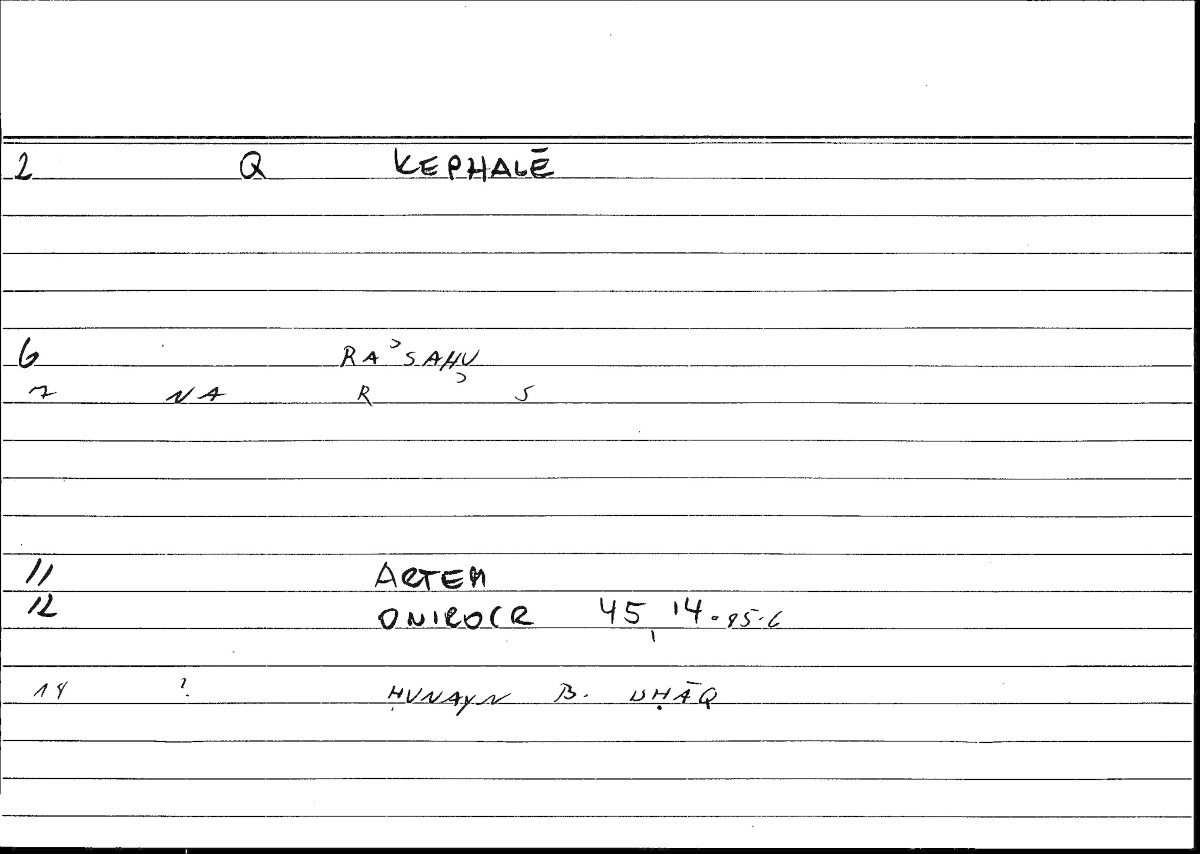 2 Q KEPHALĒ
6 RAʾSAHU
7 NA R ʾ S
11 ARTEM
12 ONIROCR 45, 14.
14 ? ḤUNAYN B. ISḤĀQ